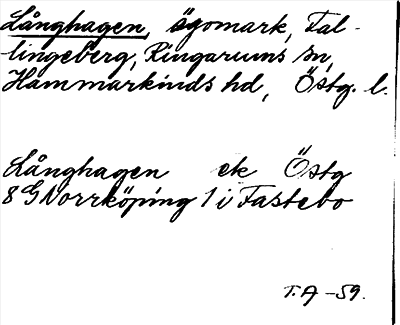 Långhagen, ägomark, Fal-
lingeberg, Ringarums sn,
Hammarkinds hd, Östg. l.
Långhagen ek Östg
8 G Norrköping 1 i Fastebo
T.A -59.